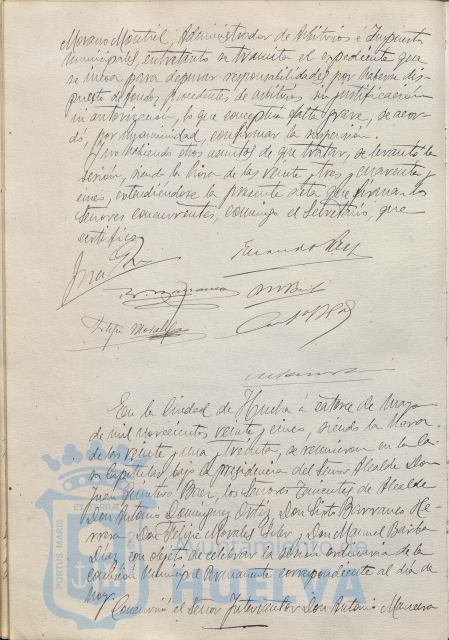 Moreno Montiel, Administrador de Arbitrios é Impuestos
municipales entretanto se tramita el expediente que
se incoa para depurar responsabilidades por haber dis-
puesto de fondos procedentes de arbitrios, sin justificación
ni autorización, lo que conceptúa falta grave, se acor-
dó, por unanimidad, confirmar la suspensión.
Y no habiendo otros asuntos de que tratar, se levantó la
sesión, siendo la hora de las veinte y tres y cuarenta y
cinco, extendiéndose la presente acta que firman los
Señores concurrentes, conmigo el Secretario, que
certifico.
Felipe Morales
En la Ciudad de Huelva á catorce de Mayo
de mil novecientos veinte y cinco, siendo la hora
de las veinte y una y treinta, se reunieron en la Ca-
sa Capitular, bajo la presidencia del Señor Alcalde Don
Juan Quintero Báez, los Señores Tenientes de Alcalde
Don Antonio Domínguez Ortiz, Don Sixto Barranco He-
rrera, Don Felipe Morales Soler, Don Manuel Barba
Díaz, con objeto de celebrar la sesión ordinaria de la
Comisión Municipal Permanente correspondiente al día de
hoy.
Concurrió el Señor Interventor Don Antonio
PORTUS MARIS
ET TERRAE
HUELVA